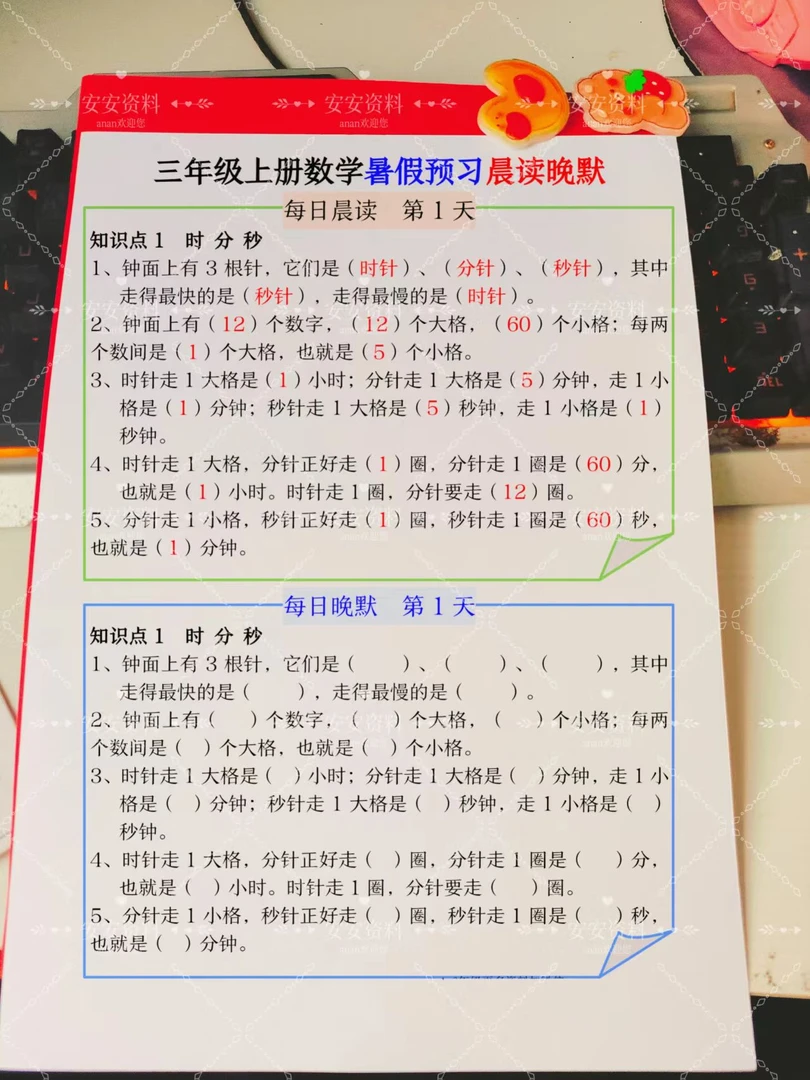 安安资料 安安资料 安安资料
anan欢迎您 anan欢迎您 anan欢迎您
三年级上册数学暑假预习晨读晚默
每日晨读 第1天
知识点1 时 分 秒
1、钟面上有3根针，它们是（时针）、（分针）、（秒针），其中
走得最快的是（秒针），走得最慢的是（时针）。
2、钟面上有（12）个数字，（12）个大格，（60）个小格；每两
个数间是（1）个大格，也就是（5）个小格。
3、时针走1大格是（1）小时；分针走1大格是（5）分钟，走1小
格是（1）分钟；秒针走1大格是（5）秒钟，走1小格是（1）
秒钟。
4、时针走1大格，分针正好走（1）圈，分针走1圈是（60）分，
也就是（1）小时。时针走1圈，分针要走（12）圈。
5、分针走1小格，秒针正好走（1）圈，秒针走1圈是（60）秒，
也就是（1）分钟。
每日晚默 第1天
知识点1 时 分 秒
1、钟面上有3根针，它们是（ ）、（ ）、（ ），其中
走得最快的是（ ），走得最慢的是（ ）。
2、钟面上有（ ）个数字，（ ）个大格，（ ）个小格；每两
个数间是（ ）个大格，也就是（ ）个小格。
3、时针走1大格是（ ）小时；分针走1大格是（ ）分钟，走1小
格是（ ）分钟；秒针走1大格是（ ）秒钟，走1小格是（ ）
秒钟。
4、时针走1大格，分针正好走（ ）圈，分针走1圈是（ ）分，
也就是（ ）小时。时针走1圈，分针要走（ ）圈。
5、分针走1小格，秒针正好走（ ）圈，秒针走1圈是（ ）秒，
也就是（ ）分钟。